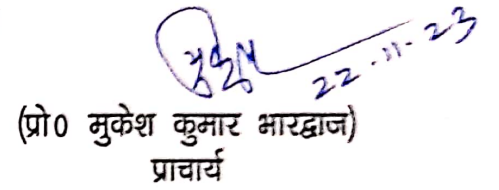 22.11.23
(प्रो0 मुकेश कुमार भारद्वाज)
प्राचार्य